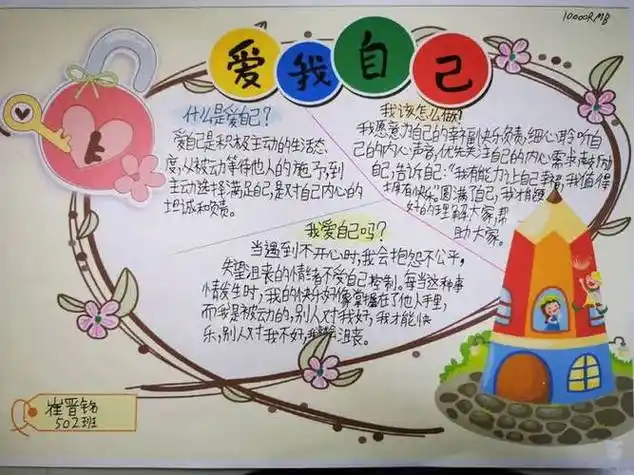 10000RMB
爱我自己
什么是爱自己?
爱自己是积极主动的生活态
度,从被动等待他人的施予,到
主动选择满足自己,是对自己内心的
坦诚和负责。
我该怎么做?
我愿意为自己的幸福快乐负责,细心聆听自
己的内心声音,优先关注自己的内心需求,鼓励
自己,告诉自己:“我有能力让自己幸福,我值得
拥有快乐。”圆满了自己,我才能更
好的理解大家,帮
助大家。
我爱自己吗?
当遇到不开心时,我会抱怨不公平,
失望沮丧的情绪不受自己控制。每当这种事
情发生时,我的快乐好像掌握在了他人手里,
而我是被动的,别人对我好,我才能快
乐,别人对我不好,我会沮丧。
崔晋铭
502班